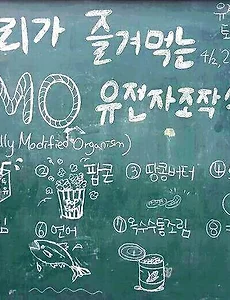 리가 즐겨먹는
유전
토
4/2, 2
MO 유전자조작
lly Modified Organism)
② 팝콘 ③ 땅콩버터 ④
⑥ 연어 ⑦ 옥수수통조림 ⑧